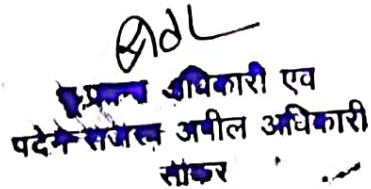 अधिकारी एव
पदेन राजस्व अपील अधिकारी
सीकर